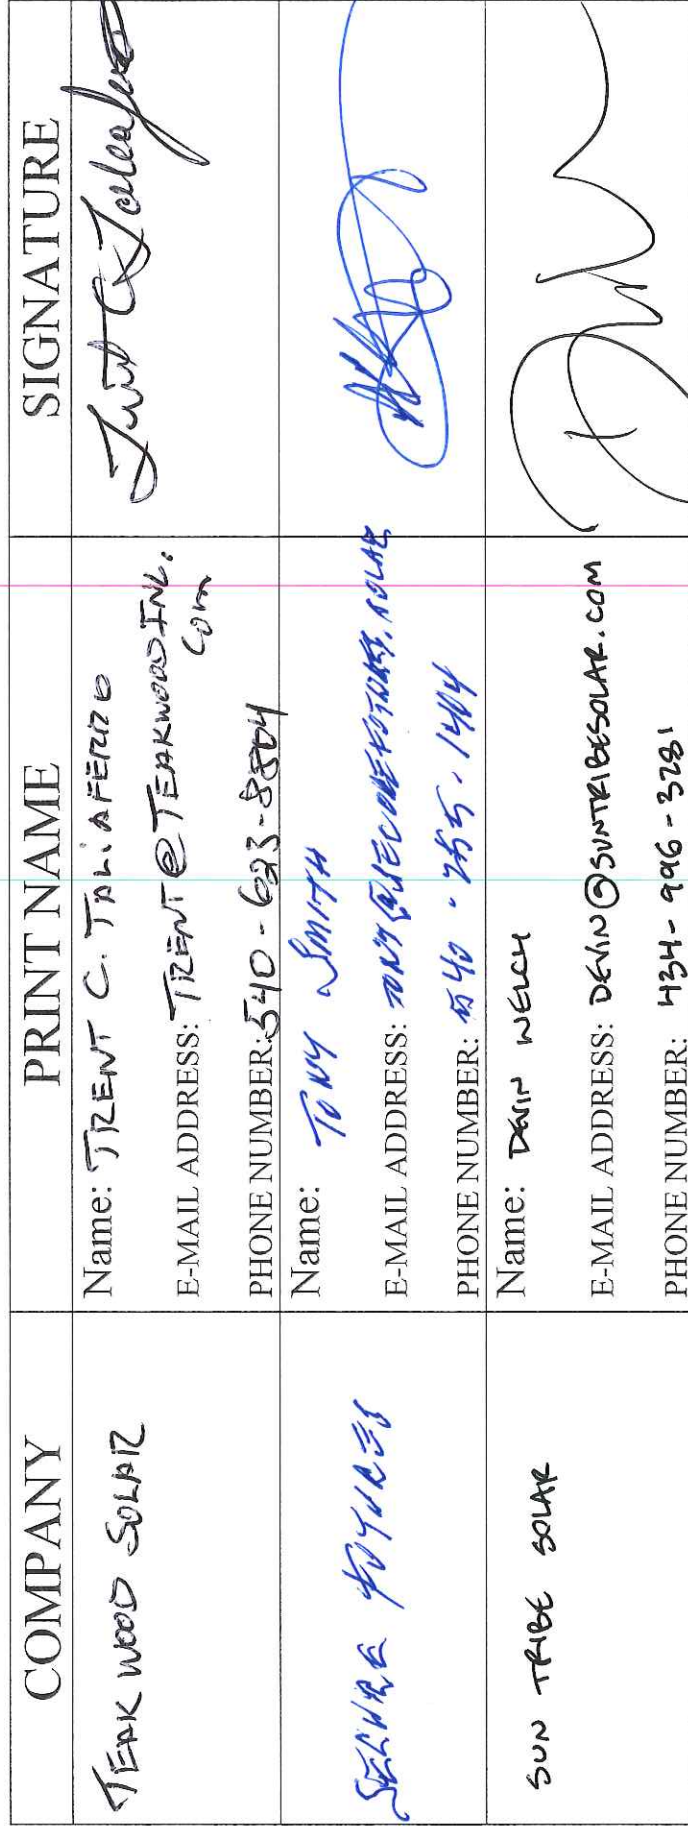 COMPANY PRINT NAME SIGNATURE
TEAKWOOD SOLAR
Name: TRENT C. TALIAFERRO
E-MAIL ADDRESS: TRENT@TEAKWOODINC.
com
PHONE NUMBER: 540-623-8504
SECURE FUTURES
Name: TONY SMITH
E-MAIL ADDRESS: TONY@SECUREFUTURES.SOLAR
PHONE NUMBER: 540-255-1404
SUN TRIBE SOLAR
Name: DEVIN WELCH
E-MAIL ADDRESS: DEVIN@SUNTRIBESOLAR.COM
PHONE NUMBER: 434-996-3281